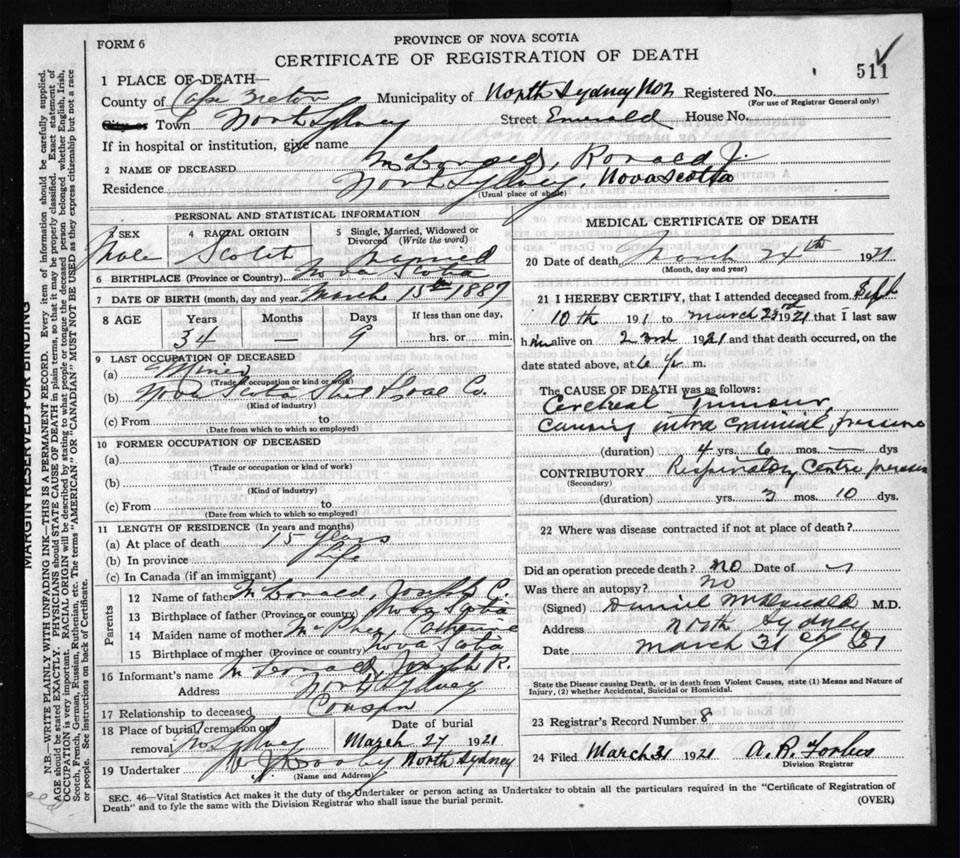 PROVINCE OF NOVA SCOTIA
FORM 6
CERTIFICATE OF REGISTRATION OF DEATH
511
1 PLACE OF DEATH—
County of Cape Breton Municipality of North Sydney Registered No.
(For use of Registrar General only)
City or Town North Sydney Street Emerald House No.
If in hospital or institution, give name
2 NAME OF DECEASED McDonald, Ronald J.
Residence North Sydney, Nova Scotia
(Usual place of abode)
PERSONAL AND STATISTICAL INFORMATION
3 SEX Male
4 RACIAL ORIGIN Scotch
5 Single, Married, Widowed or Divorced (Write the word) Married
6 BIRTHPLACE (Province or Country) Nova Scotia
7 DATE OF BIRTH (month, day and year March 15th 1887
8 AGE Years Months Days If less than one day,
34 — 9 hrs. or min.
9 LAST OCCUPATION OF DECEASED
(a) Miner
(Trade or occupation or kind or work)
(b) Nova Scotia Steel & Coal Co.
(Kind of industry)
(c) From to
(Date from which to which so employed)
10 FORMER OCCUPATION OF DECEASED
(a)
(Trade or occupation or kind of work)
(b)
(Kind of industry)
(c) From to
(Date from which to which so employed)
11 LENGTH OF RESIDENCE (In years and months)
(a) At place of death 15 years
(b) In province Life
(c) In Canada (if an immigrant)
Parents
12 Name of father McDonald, Joseph C.
13 Birthplace of father (Province or country) Nova Scotia
14 Maiden name of mother
15 Birthplace of mother (Province or country) Nova Scotia
16 Informant's name McDonald, Joseph R.
Address North Sydney
17 Relationship to deceased Cousin
18 Place of burial, cremation or removal No. Sydney
Date of burial March 27 1921
19 Undertaker North Sydney
(Name and Address)
MEDICAL CERTIFICATE OF DEATH
20 Date of death March 24th 1921
(Month, day and year)
21 I HEREBY CERTIFY, that I attended deceased from Sept
10th 191 to March 23rd 1921 that I last saw
him alive on 23rd 1921 and that death occurred, on the
date stated above, at 6 p m.
The CAUSE OF DEATH was as follows:
Cerebral Tumour
causing intra cranial pressure
(duration) 4 yrs. 6 mos. — dys
CONTRIBUTORY Respiratory Centre pressure
(Secondary)
(duration) yrs. 3 mos. 10 dys.
22 Where was disease contracted if not at place of death?
Did an operation precede death? no Date of
Was there an autopsy? no
(Signed) Daniel McDonald M.D.
Address North Sydney
Date March 31
State the Disease causing Death, or in death from Violent Causes, state (1) Means and Nature of
Injury, (2) whether Accidental, Suicidal or Homicidal.
23 Registrar's Record Number 8
24 Filed March 31 1921 A. R. Forbes
Division Registrar
SEC. 46—Vital Statistics Act makes it the duty of the Undertaker or person acting as Undertaker to obtain all the particulars required in the "Certificate of Registration of
Death" and to fyle the same with the Division Registrar who shall issue the burial permit.
(OVER)
MARGIN RESERVED FOR BINDING
N.B.—WRITE PLAINLY WITH UNFADING INK—THIS IS A PERMANENT RECORD. Every item of information should be carefully supplied.
AGE should be stated EXACTLY. PHYSICIANS should STATE CAUSE OF DEATH in plain terms, so that it may be properly classified. Exact statement of
OCCUPATION is very important. RACIAL ORIGIN will be described by stating to what people or tongue the deceased person belonged whether English, Irish,
Scotch, French, German, Russian, Ruthenian, etc. The terms "AMERICAN" or "CANADIAN" MUST NOT BE USED as they express citizenship but not a race
or people. See instructions on back of Certificate.